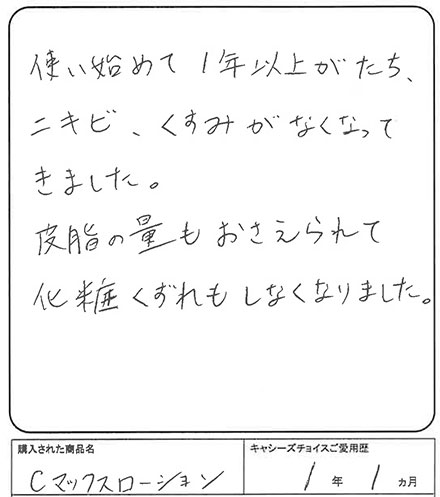 使い始めて1年以上がたち、
ニキビ、くすみがなくなって
きました。
皮脂の量もおさえられて
化粧くずれもしなくなりました。
購入された商品名
Cマックスローション
キャシーズチョイスご愛用歴
1年1ヵ月